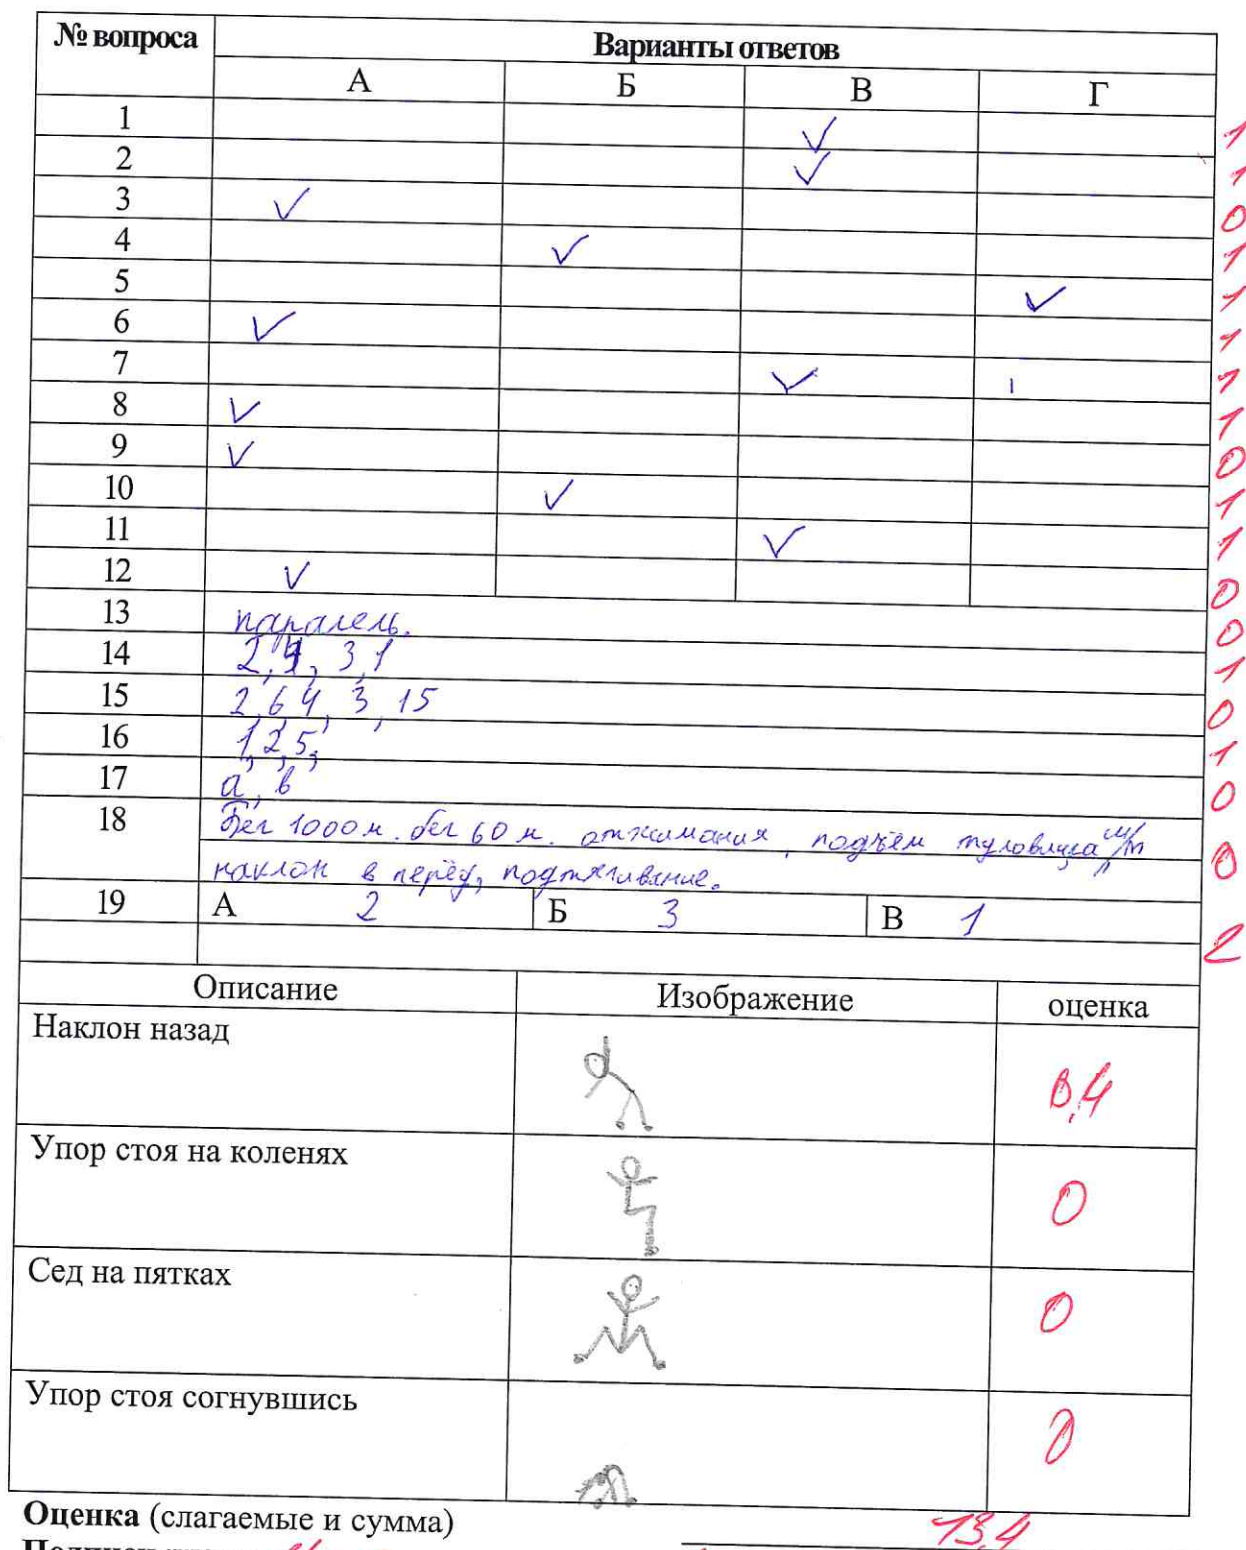 № вопроса Варианты ответов
А Б В Г
1 ✓ 1
2 ✓ 1
3 ✓ 0
4 ✓ 1
5 ✓ 1
6 ✓ 1
7 ✓ 1
8 ✓ 1
9 ✓ 0
10 ✓ 1
11 ✓ 1
12 ✓ 0
13 паралель. 0
14 2, 4, 3, 1 1
15 2, 6 4, 3, 15 0
16 1, 2, 5, 1
17 а, в 0
18 Бег 1000 м. бег 60 м. отжимания, подъём туловища, 0
наклон в перёд, подтягивание.
19 А 2 Б 3 В 1 2
Описание Изображение оценка
Наклон назад 0,4
Упор стоя на коленях 0
Сед на пятках 0
Упор стоя согнувшись 0
Оценка (слагаемые и сумма) 13,4